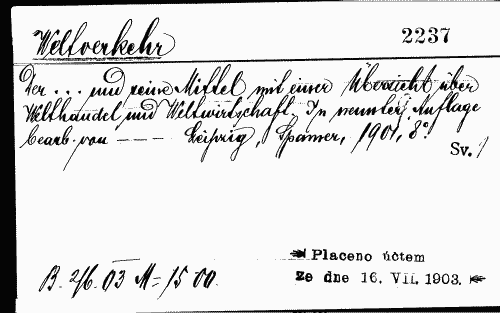 Weltverkehr 2237
Der ... und seine Mittel mit einer Übersicht über
Welthandel und Weltwirtschaft. In neunter Auflage
bearb. von — — — Leipzig, Spamer, 1901, 8°.
Sv. 1
Placeno účtem
B. 2/6. 03 M = 15 00. ze dne 16. VII. 1903.